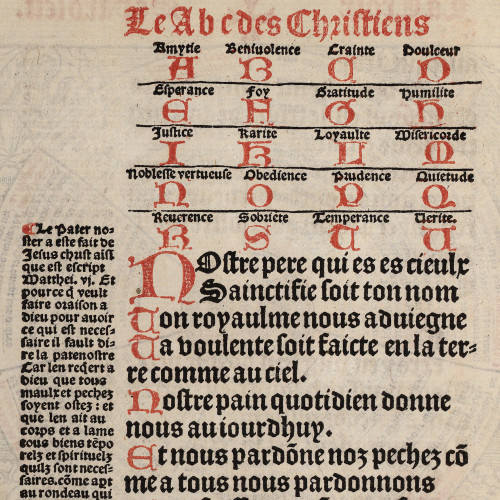 Le Abc des Chrestiens
Amytie Beniuolence Crainte Doulceur
A B C D
Esperance Foy Gratitude Humilite
E F G H
Justice Karite Loyaulte Misericorde
I K L M
Noblesse vertueuse Obedience Prudence Quietude
N O P Q
Reuerence Sobriete Temperance Uerite.
R S T U
Nostre pere qui es es cieulx
Sainctifie soit ton nom
Ton royaulme nous aduiegne
Ta voulente soit faicte en la ter-
re comme au ciel.
Nostre pain quotidien donne
nous au iourdhuy.
Et nous pardõne noz pechez cõ
me a tous nous pardonnons
Le Pater no-
ster a este fait de
Jesus christ aisi
que est escript
Matthei. vj. Et
pource q̃ veult
faire oraison a
dieu pour auoir
ce qui est neces-
saire il fault di-
re la patenostre
Car len reqert a
dieu que tous
maulx et pechez
soyent ostez: et
que len ait au
corps et a lame
tous biens tẽpo
relz et spirituelz
quilz sont neces-
saires. cõme apt
au rondeau qui